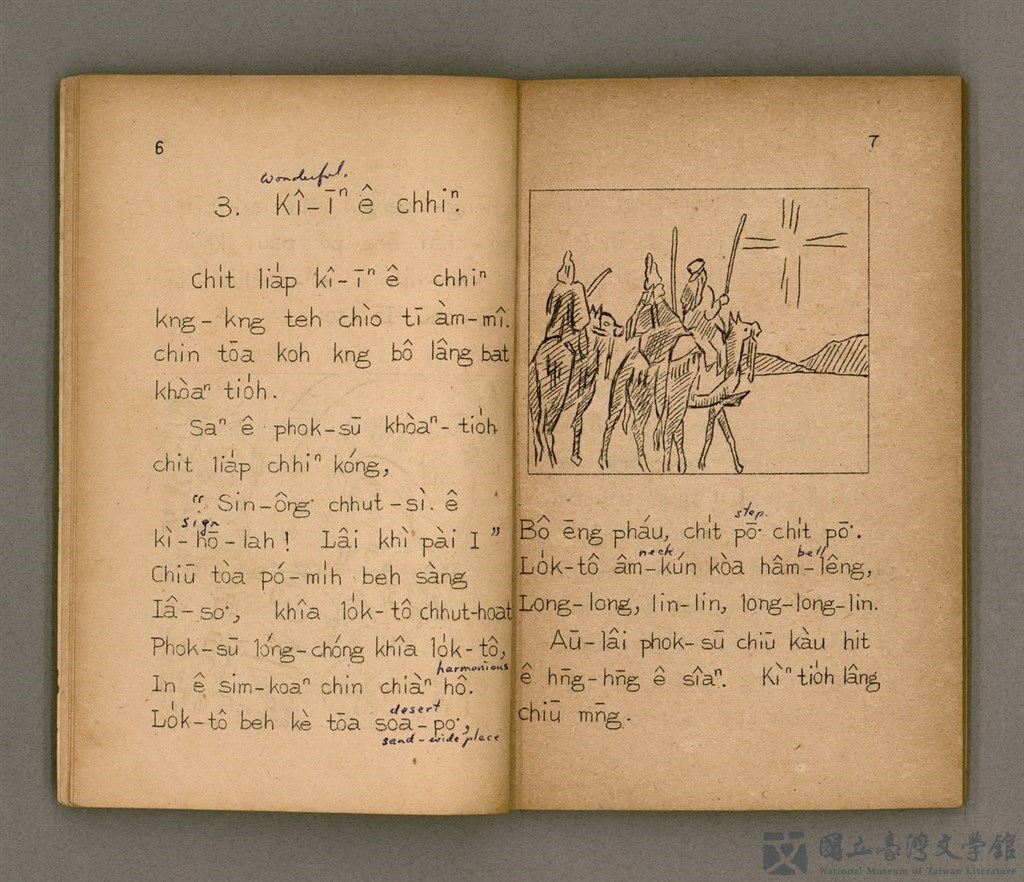 6
wonderful.
3. Kî-īⁿ ê chhiⁿ.
Chi̍t lia̍p kî-īⁿ ê chhiⁿ
kng-kng teh chìo tī àm-mî.
chin tōa koh kng bô lâng bat
khòaⁿ tio̍h.
Saⁿ ê phok-sū khòaⁿ-tio̍h
chit lia̍p chhiⁿ kóng,
“ Sin-ông chhut-sì. ê
sign
kì-hō-lah! Lâi khì pài I ”
Chiū tòa pó-mi̍h beh sàng
Iâ-so͘, khîa lo̍k-tô chhut-hoat
Phok-sū lóng-chóng khîa lo̍k-tô,
harmonious
In ê sim-koaⁿ chin chiàⁿ hô.
desert
Lo̍k-tô beh kè tōa soa-po͘,
sand-wide place
7
Bô ēng pháu, chi̍t pō͘ chi̍t pō͘.
step.
neck
bell
Lo̍k-tô âm-kún kòa hâm-lêng,
Long-long, lin-lin, long-long-lin.
Aū-lâi phok-sū chiū kàu hit
ê hn̄g-hn̄g ê sîaⁿ. Kìⁿ tio̍h lâng
chiū mn̄g.
國立臺灣文學館
National Museum of Taiwan Literature